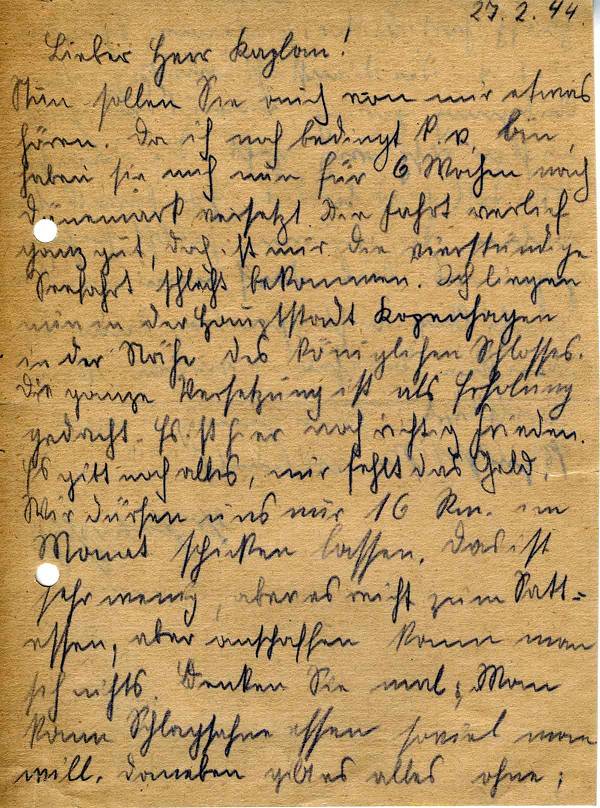 27. 2. 44.
Lieber Herr Kaplan!
Nun sollen Sie auch von mir etwas
hören. Da ich noch bedingt k. v. bin,
haben sie mich nun für 6 Wochen nach
Dänemark versetzt. Die Fahrt verlief
ganz gut, doch ist mir die vierstündige
Seefahrt schlecht bekommen. Ich liegen
nun in der Hauptstadt Kopenhagen
in der Nähe des königlichen Schlosses.
Die ganze Versetzung ist als Erholung
gedacht. Es ist hier noch richtig Frieden.
Es gibt noch alles, nur fehlt das Geld.
Wir dürfen uns nur 16 Rm. im
Monat schicken lassen. Das ist
sehr wenig, aber es reicht zum Satt-
essen, aber anschaffen kann man
sich nichts. Denken Sie mal; Man
kann Schlagsahne essen soviel man
will. Daneben gibt es alles ohne;